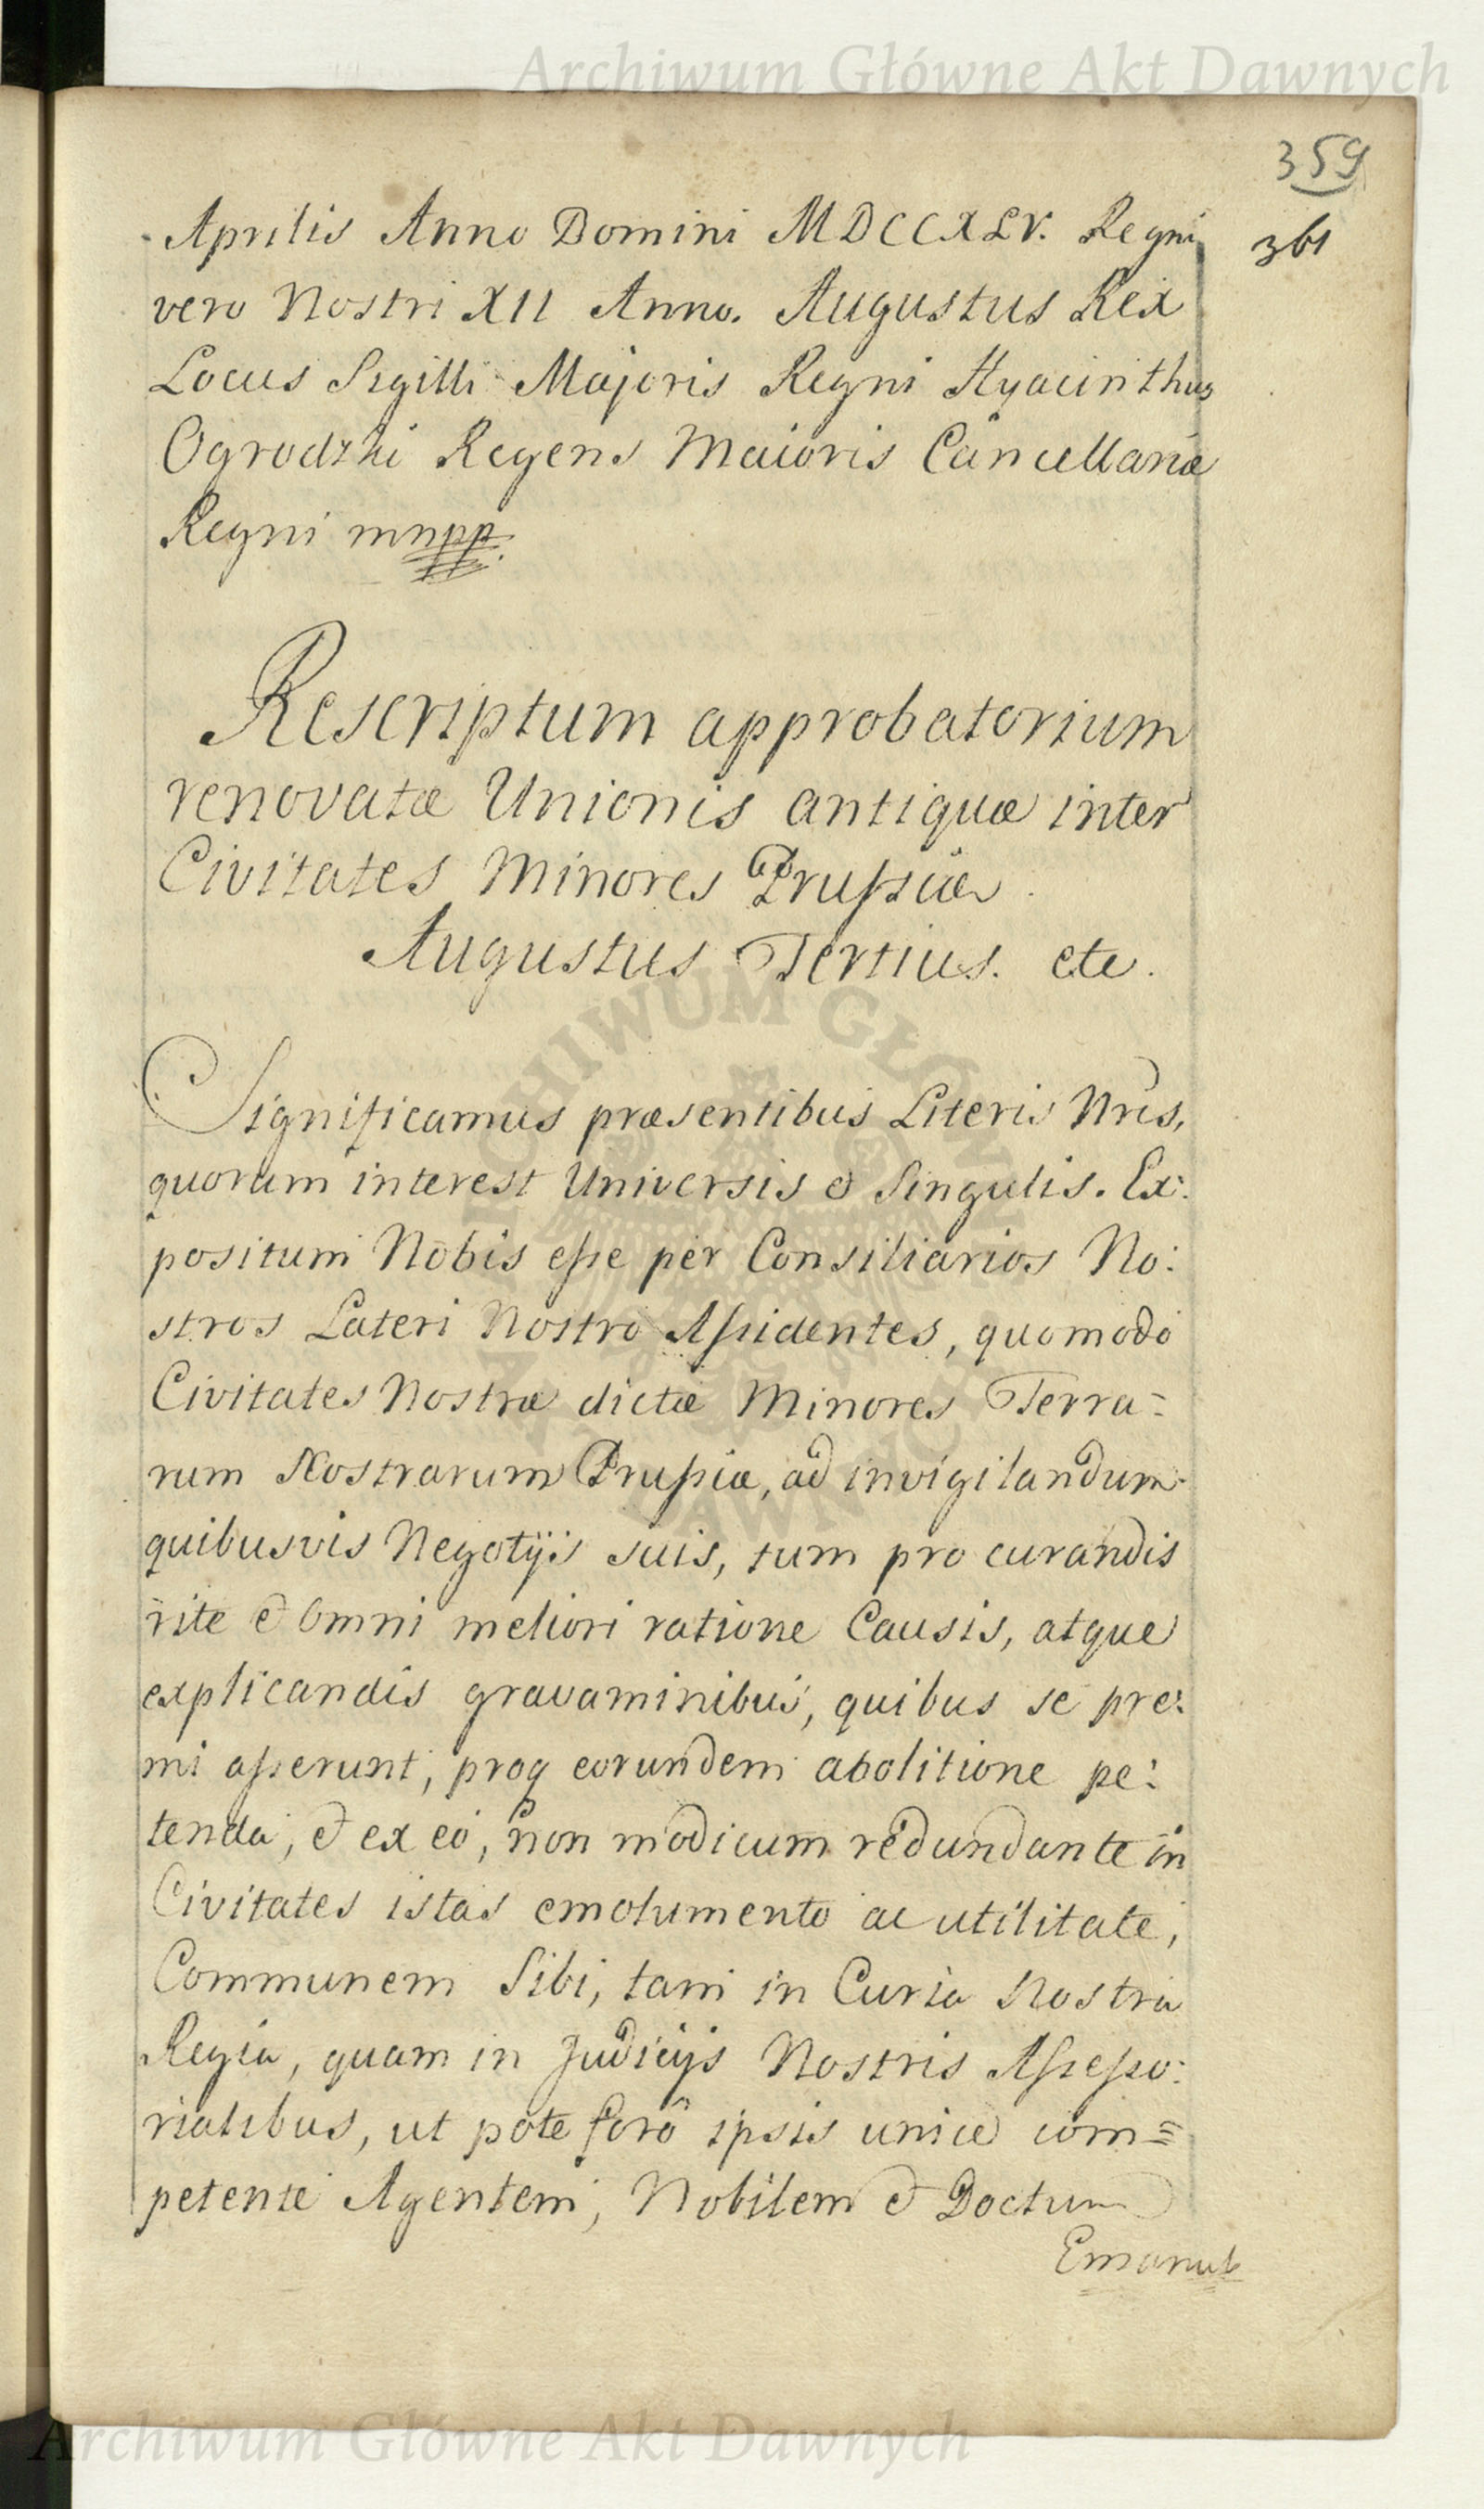 Archiwum Główne Akt Dawnych
359
361
Aprilis Anno Domini MDCCXLV. Regni
vero Nostri XII Anno. Augustus Rex
Locus Sigilli Majoris Regni Hyacinthus
Ogrodzki Regens Maioris Cancellariæ
Regni mnpp.
Rescriptum approbatorium
renovatæ Unionis antiquæ inter
Civitates Minores Prussiæ
Augustus Tertius. etc.
Significamus præsentibus Literis Nris,
quorum interest Universis & Singulis. Ex:
positum Nobis esse per Consiliarios No:
stros Lateri Nostro Assidentes, quomodo
Civitates Nostræ dictæ Minores Terra-
rum Nostrarum Prussiæ, ad invigilandum
quibusvis Negotijs suis, tum pro curandis
rite & omni meliori ratione Causis, atque
explicandis gravaminibus, quibus se pre:
mi asserunt, proq eorundem abolitione pe:
tenda, & ex eo, non modicum redundante in
Civitates istas emolumento ac utilitate,
Communem Sibi, tam in Curia Nostra
Regia, quam in Judicijs Nostris Assesso:
rialibus, ut pote foro ipsis unice com=
petente Agentem, Nobilem & Doctum
Emanuel
ARCHIWUM GŁÓWNE AKT DAWNYCH
Archiwum Główne Akt Dawnych